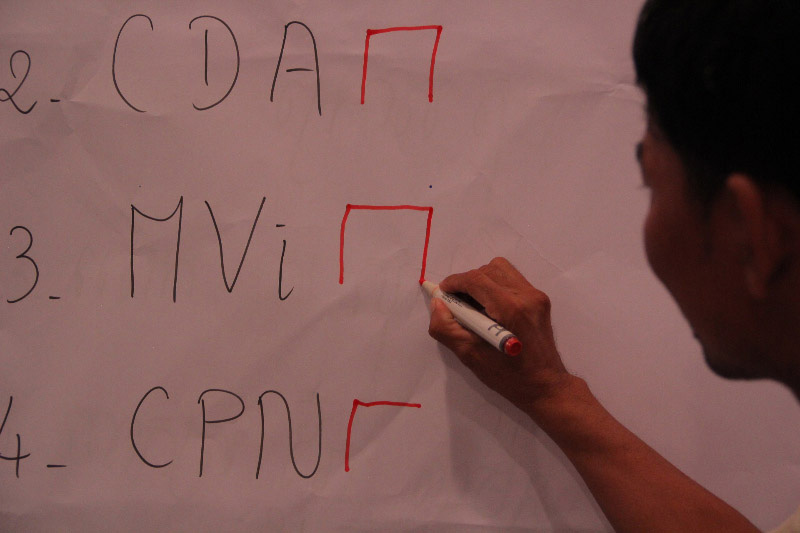 2. CDA
3. MVi
4. CPN